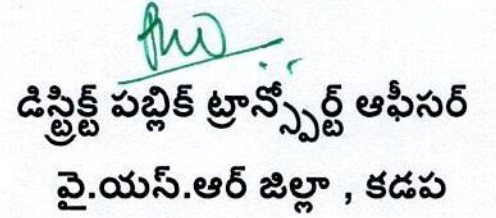 డిస్ట్రిక్ట్ పబ్లిక్ ట్రాన్స్పోర్ట్ ఆఫీసర్
వై.యస్.ఆర్ జిల్లా , కడప